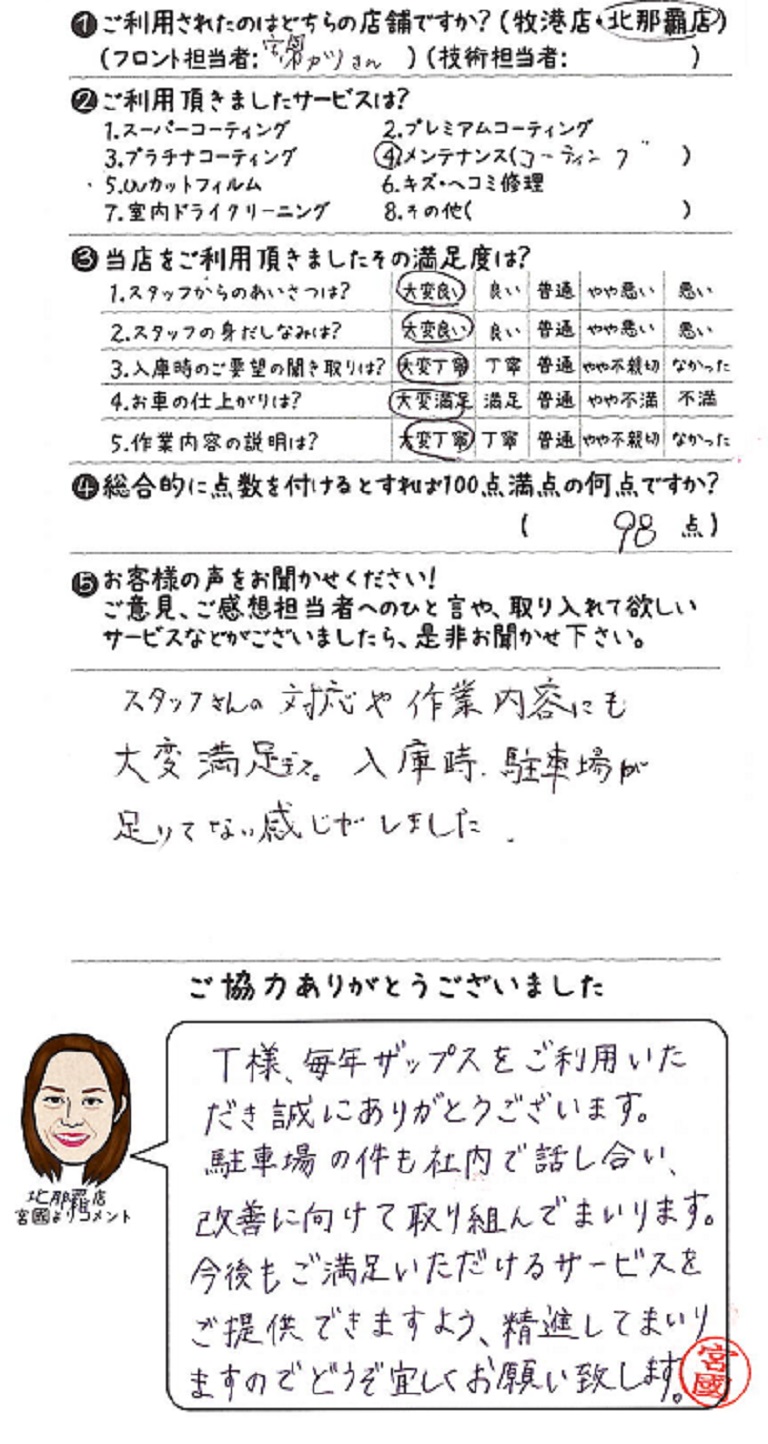 ❶ご利用されたのはどちらの店舗ですか?(牧港店・北那覇店)
(フロント担当者: 宮國 さん )(技術担当者: )
❷ご利用頂きましたサービスは?
1.スーパーコーティング 2.プレミアムコーティング
3.プラチナコーティング 4.メンテナンス(コーティング )
5.UVカットフィルム 6.キズ・ヘコミ修理
7.室内ドライクリーニング 8.その他( )
❸当店をご利用頂きましたその満足度は?
1.スタッフからのあいさつは? 大変良い 良い 普通 やや悪い 悪い
2.スタッフの身だしなみは? 大変良い 良い 普通 やや悪い 悪い
3.入庫時のご要望の聞き取りは? 大変丁寧 丁寧 普通 やや不親切 なかった
4.お車の仕上がりは? 大変満足 満足 普通 やや不満 不満
5.作業内容の説明は? 大変丁寧 丁寧 普通 やや不親切 なかった
❹総合的に点数を付けるとすれば100点満点の何点ですか?
( 98 点)
❺お客様の声をお聞かせください!
ご意見、ご感想担当者へのひと言や、取り入れて欲しい
サービスなどがございましたら、是非お聞かせ下さい。
スタッフさんの対応や作業内容にも
大変満足デス。入庫時、駐車場が
足りてない感じがしました.
ご協力ありがとうございました
T様、毎年ザップスをご利用いた
だき誠にありがとうございます。
駐車場の件も社内で話し合い、
改善に向けて取り組んでまいります。
今後もご満足いただけるサービスを
ご提供できますよう、精進してまいり
ますのでどうぞ宜しくお願い致します。
北那覇店
宮國よりコメント
宮國